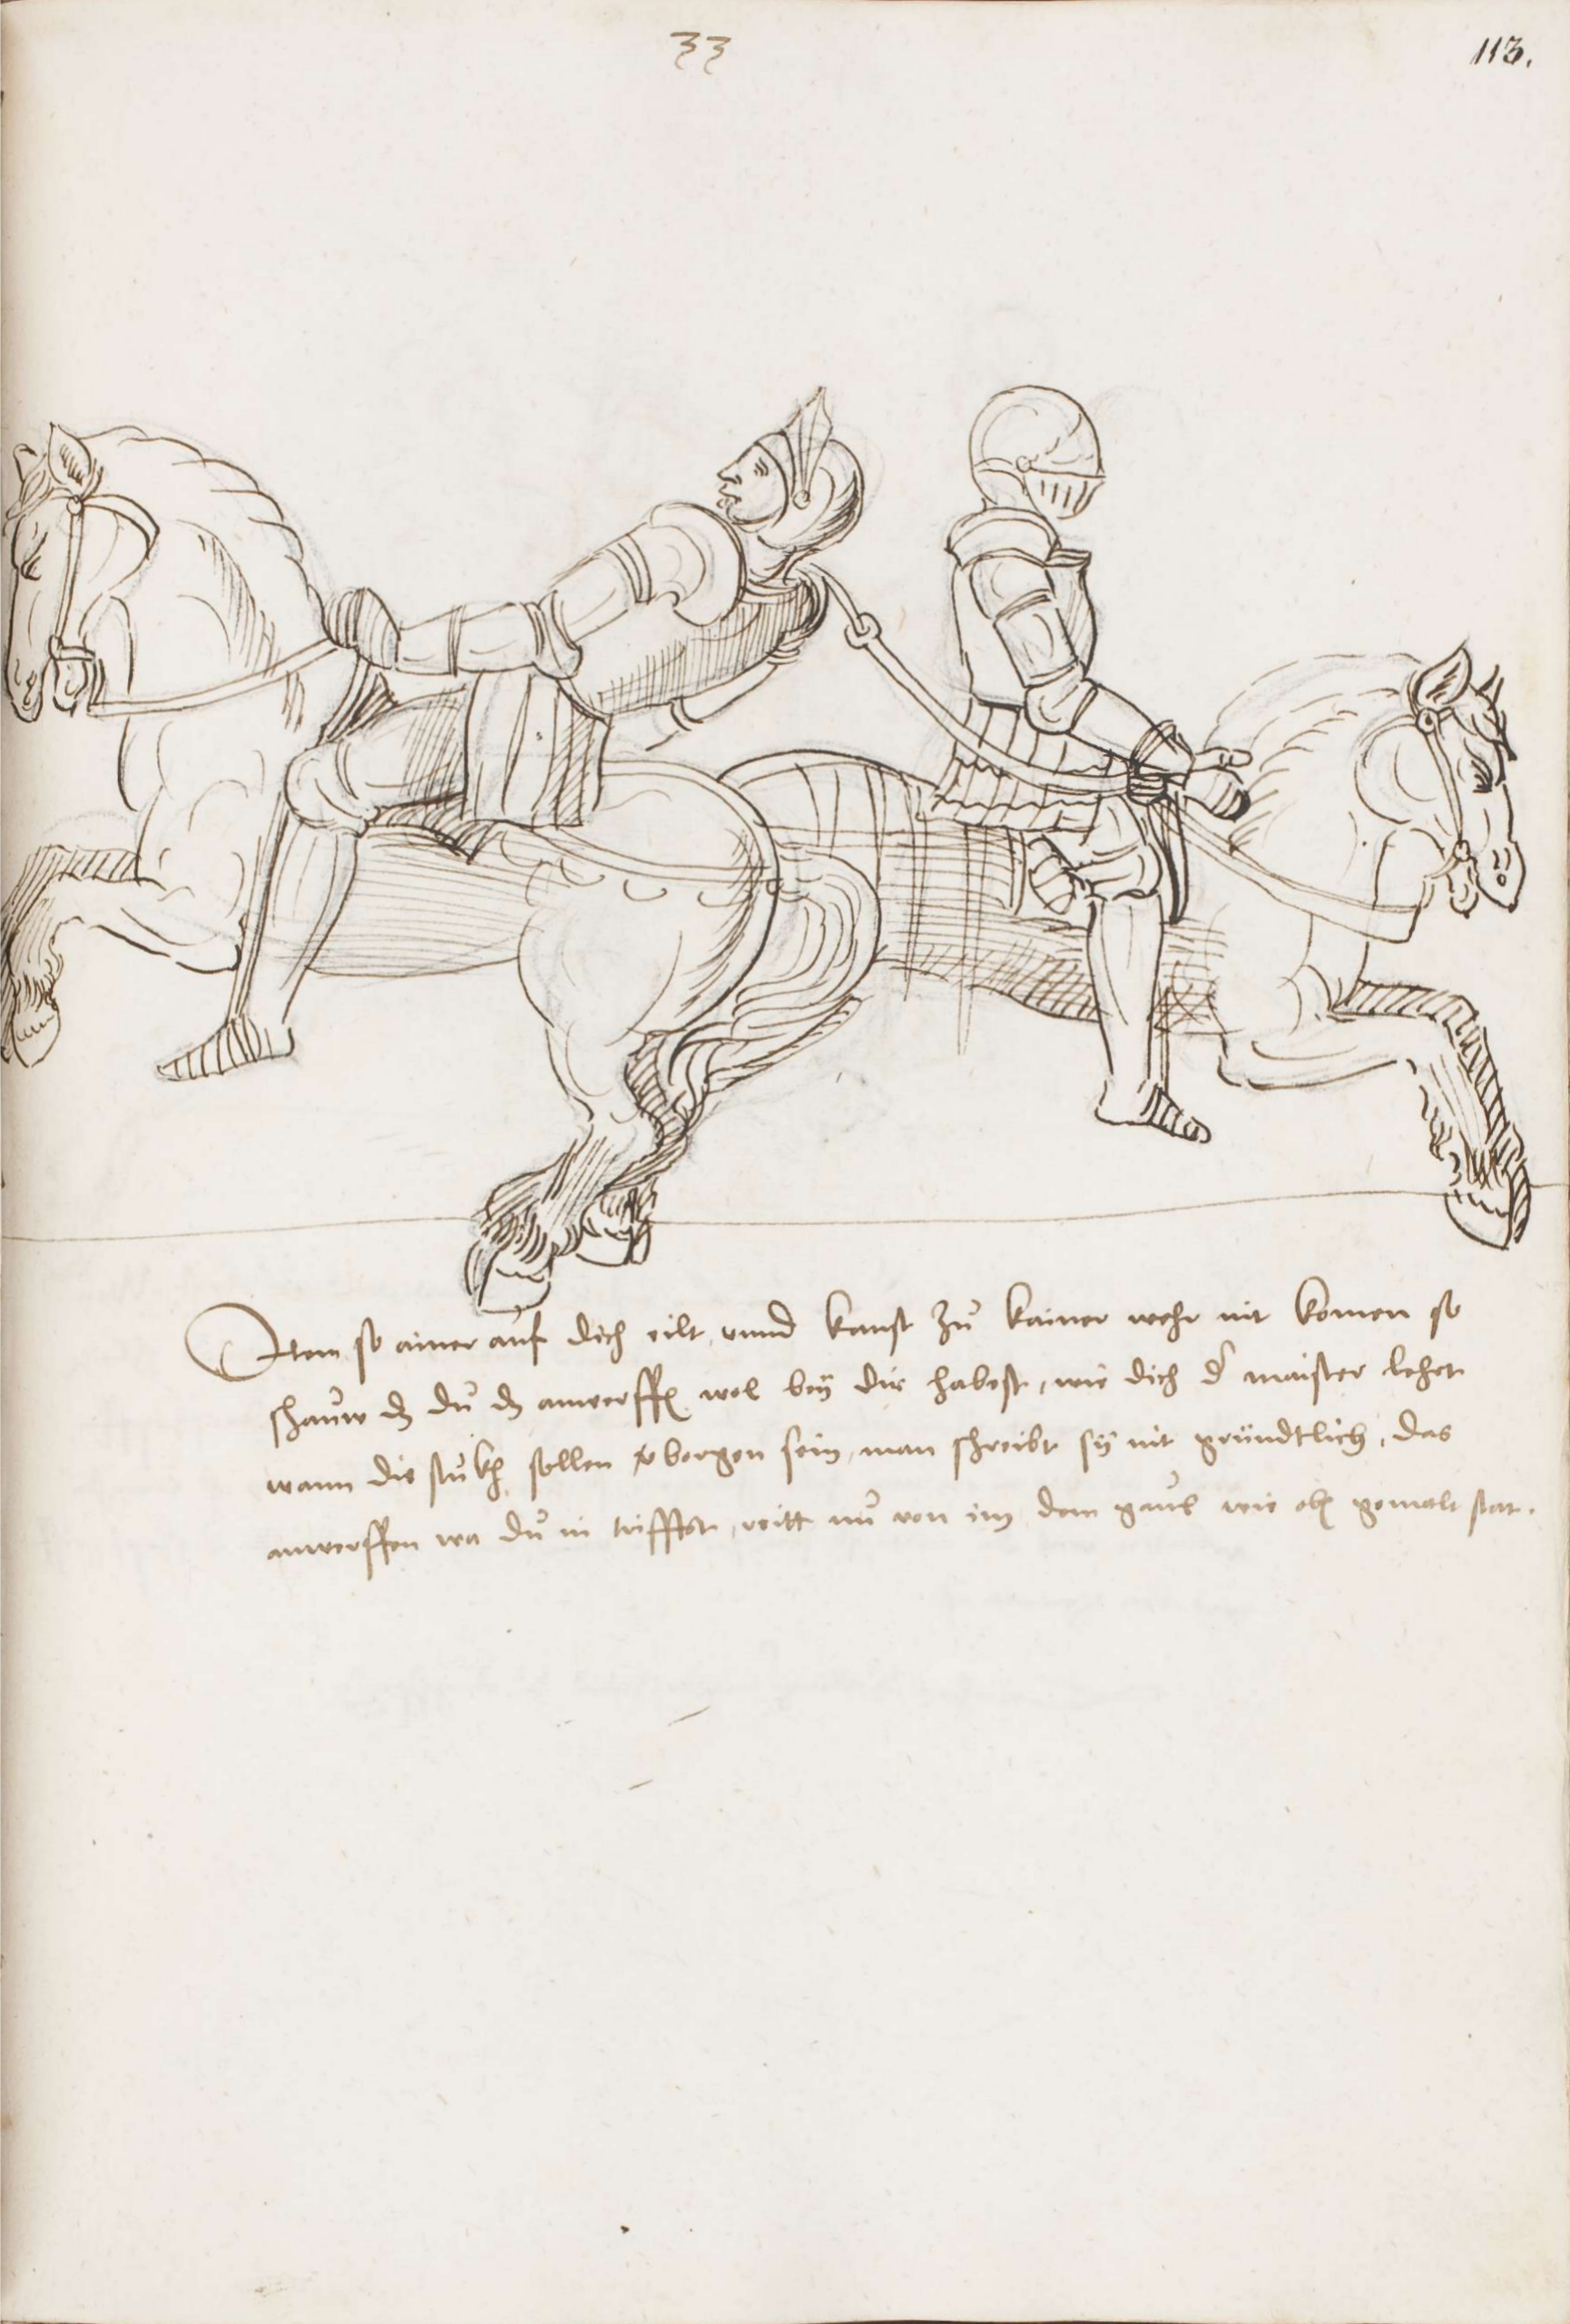 33
113.
Item so ainer auf dich eilt, unnd kanst zů kainer wehr nit komen so
schauw dz du dz anwerffen wol beÿ dir habest, wie dich der maister lehrt
wann die stuckh sollen verborgen sein, man schreibt sÿ nit gründtlich, das
anwerffen wa du in triffst, reitt nů von im dem gaul wie oben gemalt stat.